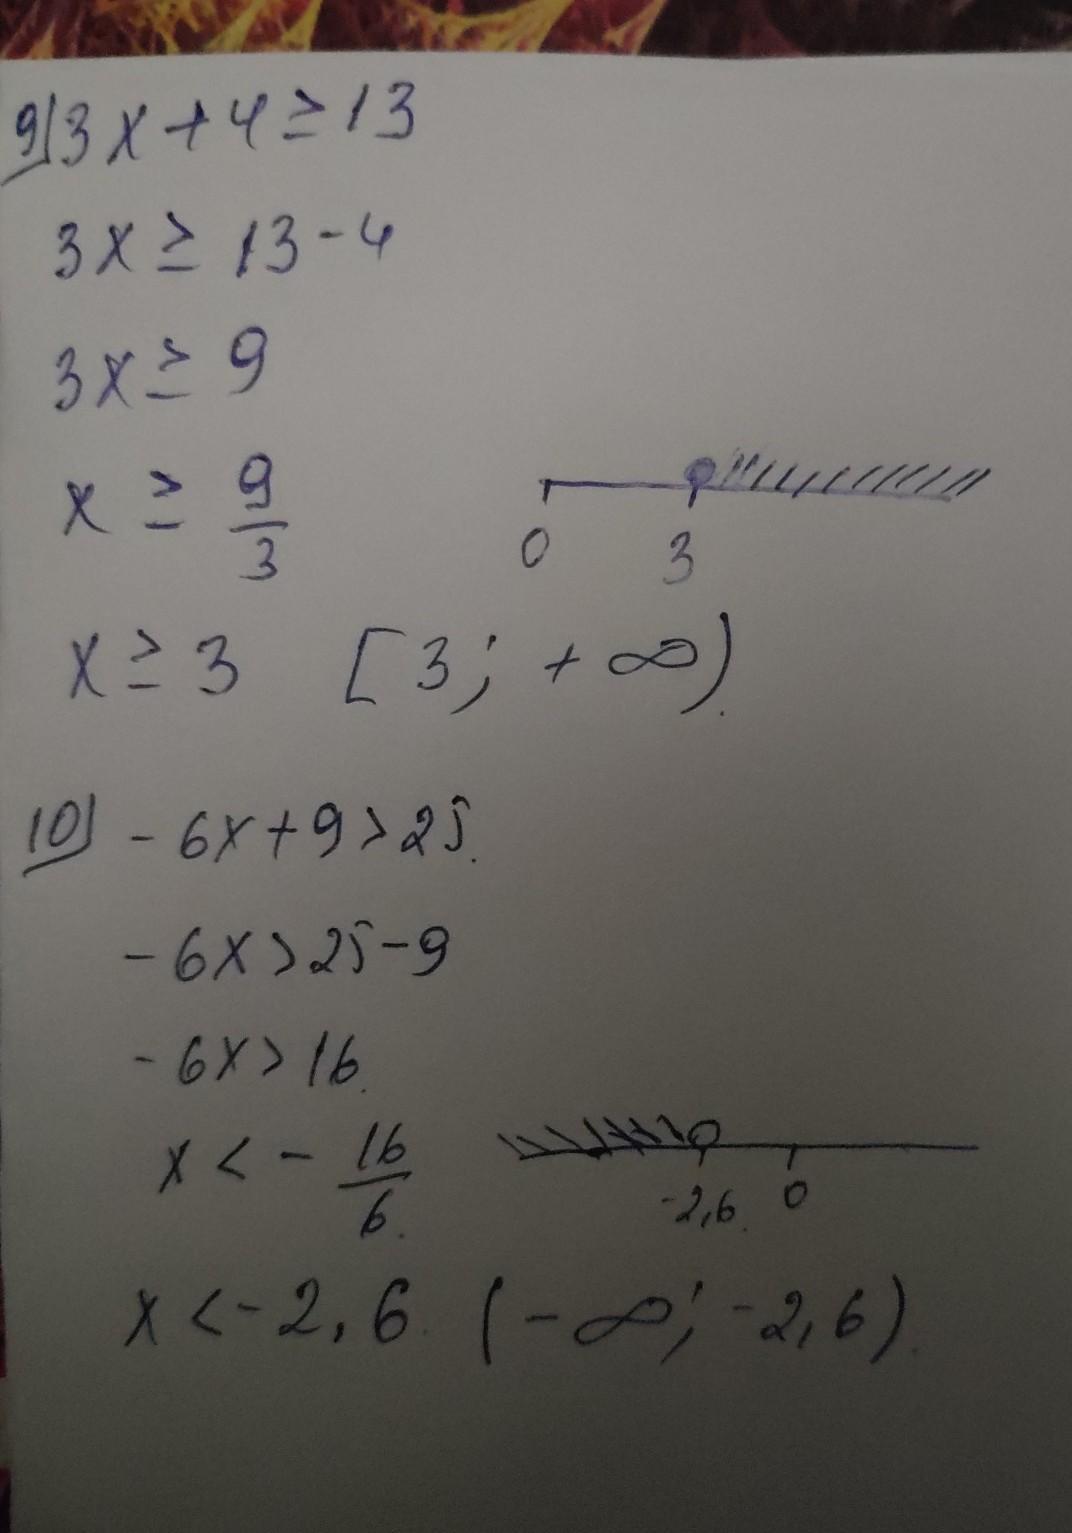 9) 3x + 4 ≥ 13
3x ≥ 13 - 4
3x ≥ 9
x ≥ 9/3
0 3
x ≥ 3 [3; + ∞).
10) - 6x + 9 > 25.
- 6x > 25 - 9
- 6x > 16.
x < - 16/6.
-2,6. 0
x < - 2,6. (- ∞; -2,6).